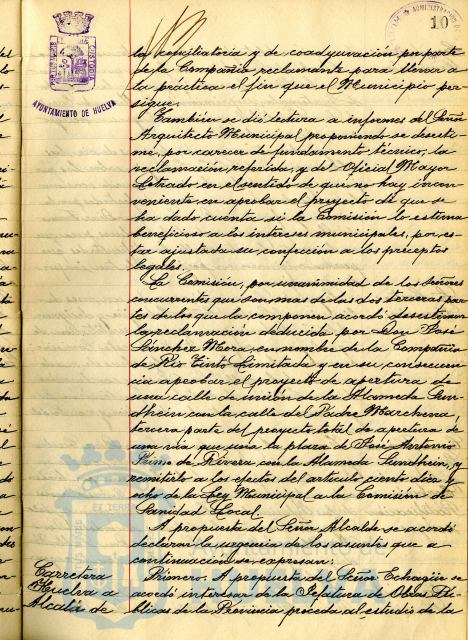 10
AYUNTAMIENTO DE HUELVA
la conciliatoria y de coadyuvación por parte
de la Compañia reclamante para llevar a
la práctica el fin que el Municipio per-
sigue.
Tambien se dió lectura a informes del Señor
Arquitecto Municipal proponiendo se desesti-
me, por carecer de fundamento técnico, la
reclamación referida, y del Oficial Mayor
Letrado en el sentido de que no hay incon-
veniente en aprobar el proyecto de que se
ha dado cuenta si la Comisión lo estima
beneficioso a los intereses municipales, por es-
tar ajustada su confección a los preceptos
legales.
La Comisión, por unanimidad de los Señores
concurrentes que son mas de las dos terceras par-
tes de los que la componen acordó desestimar
la reclamación deducida por Don José
Sánchez Mora, en nombre de la Compañia
de Rio Tinto Limitada y en su consecuen-
cia aprobar el proyecto de apertura de
una calle de unión de la Alameda Sun-
dhein con la calle del Padre Marchena,
tercera parte del proyecto total de apertura de
una via que una la plaza de José Antonio
Primo de Rivera con la Alameda Sundhein, y
remitirlo a los efectos del articulo ciento diez y
ocho de la Ley Municipal a la Comisión de
Sanidad Local.
A propuesta del Señor Alcalde se acordó
declarar la urgencia de los asuntos que a
continuación se expresan:
Carretera
Huelva a
Alcalá de
Primero. A propuesta del Señor Echagüe se
acordó interesar de la Jefatura de Obras Pú-
blicas de la Provincia proceda al estudio de la
Ayuntamiento de